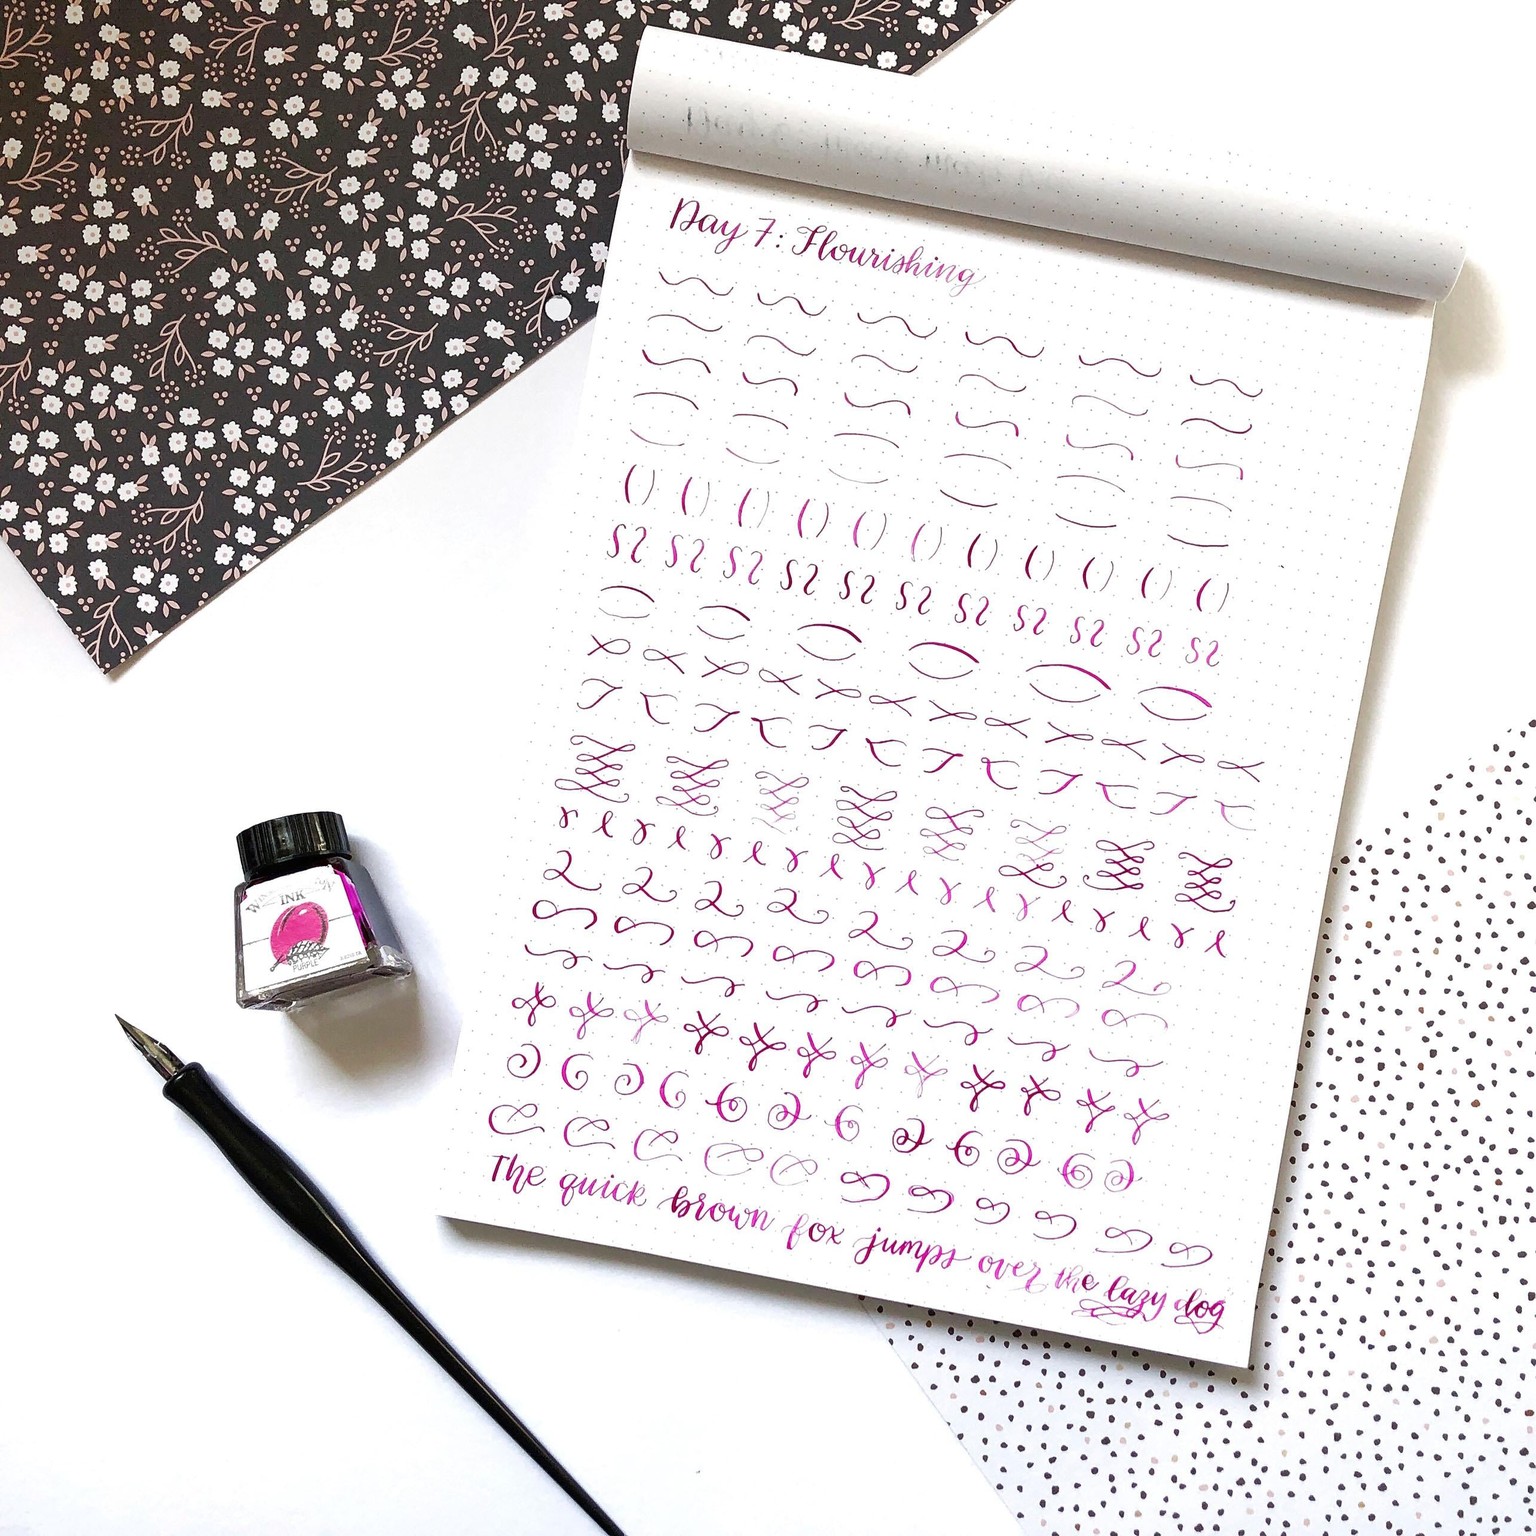 Day 7: Flourishing
The quick brown fox jumps over the lazy dog
INK
PURPLE